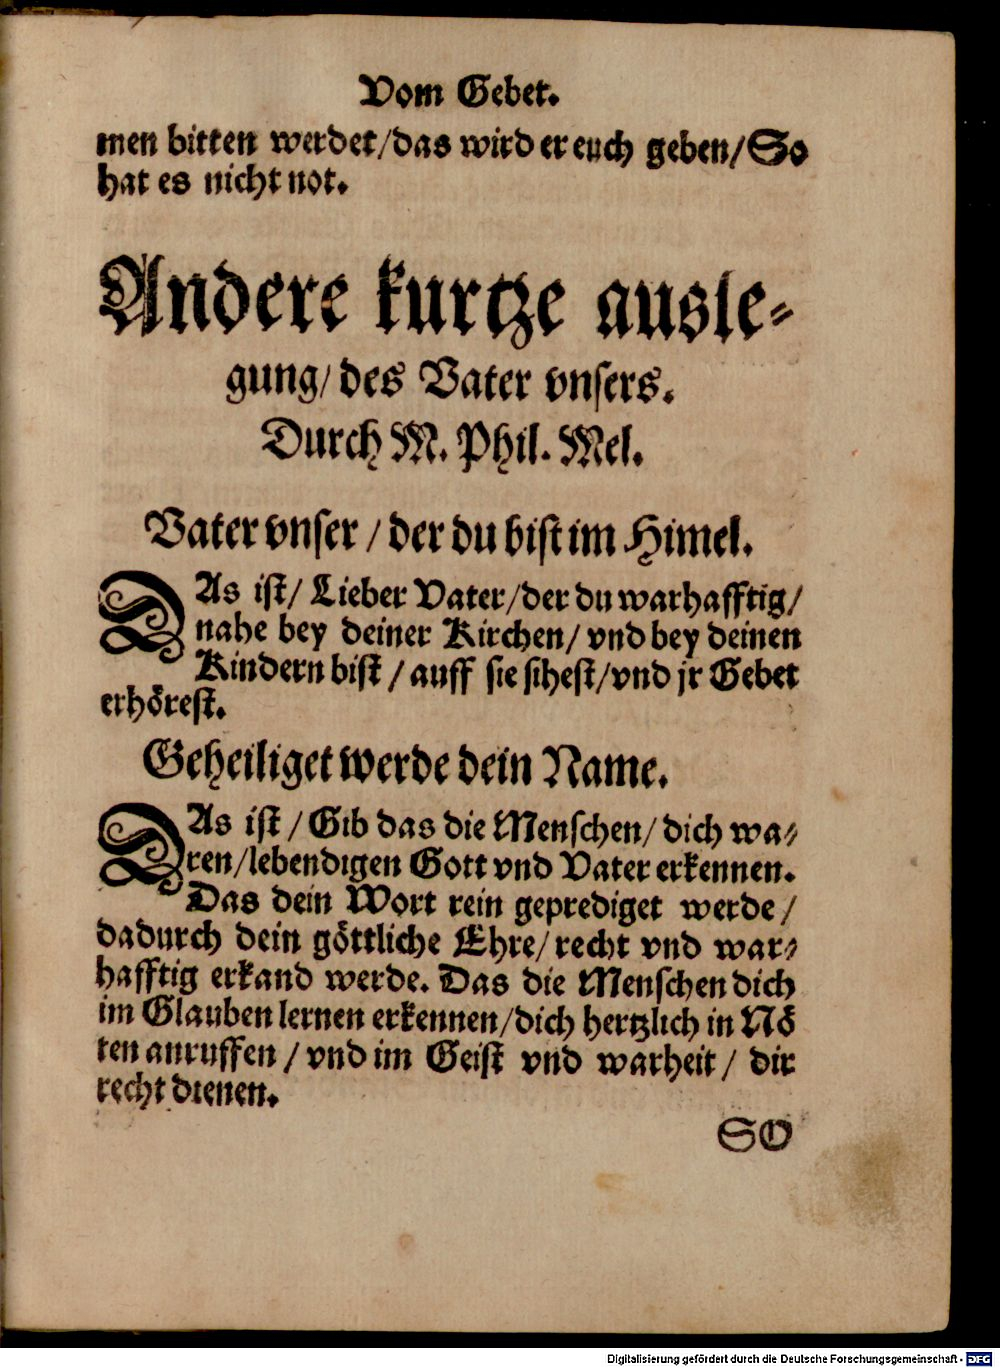 Vom Gebet.
men bitten werdet/das wird er euch geben/So
hat es nicht not.
Andere kurtze ausle-
gung/des Vater vnsers.
Durch M. Phil. Mel.
Vater vnser/der du bist im Himel.
DAs ist/Lieber Vater/der du warhafftig/
nahe bey deiner Kirchen/vnd bey deinen
Kindern bist/auff sie sihest/vnd jr Gebet
erhörest.
Geheiliget werde dein Name.
DAs ist/Gib das die Menschen/dich wa-
ren/lebendigen Gott vnd Vater erkennen.
Das dein Wort rein geprediget werde/
dadurch dein göttliche Ehre/recht vnd war-
hafftig erkand werde. Das die Menschen dich
im Glauben lernen erkennen/dich hertzlich in Nö
ten anruffen/vnd im Geist vnd warheit/dir
recht dienen.
SO
Digitalisierung gefördert durch die Deutsche Forschungsgemeinschaft - DFG